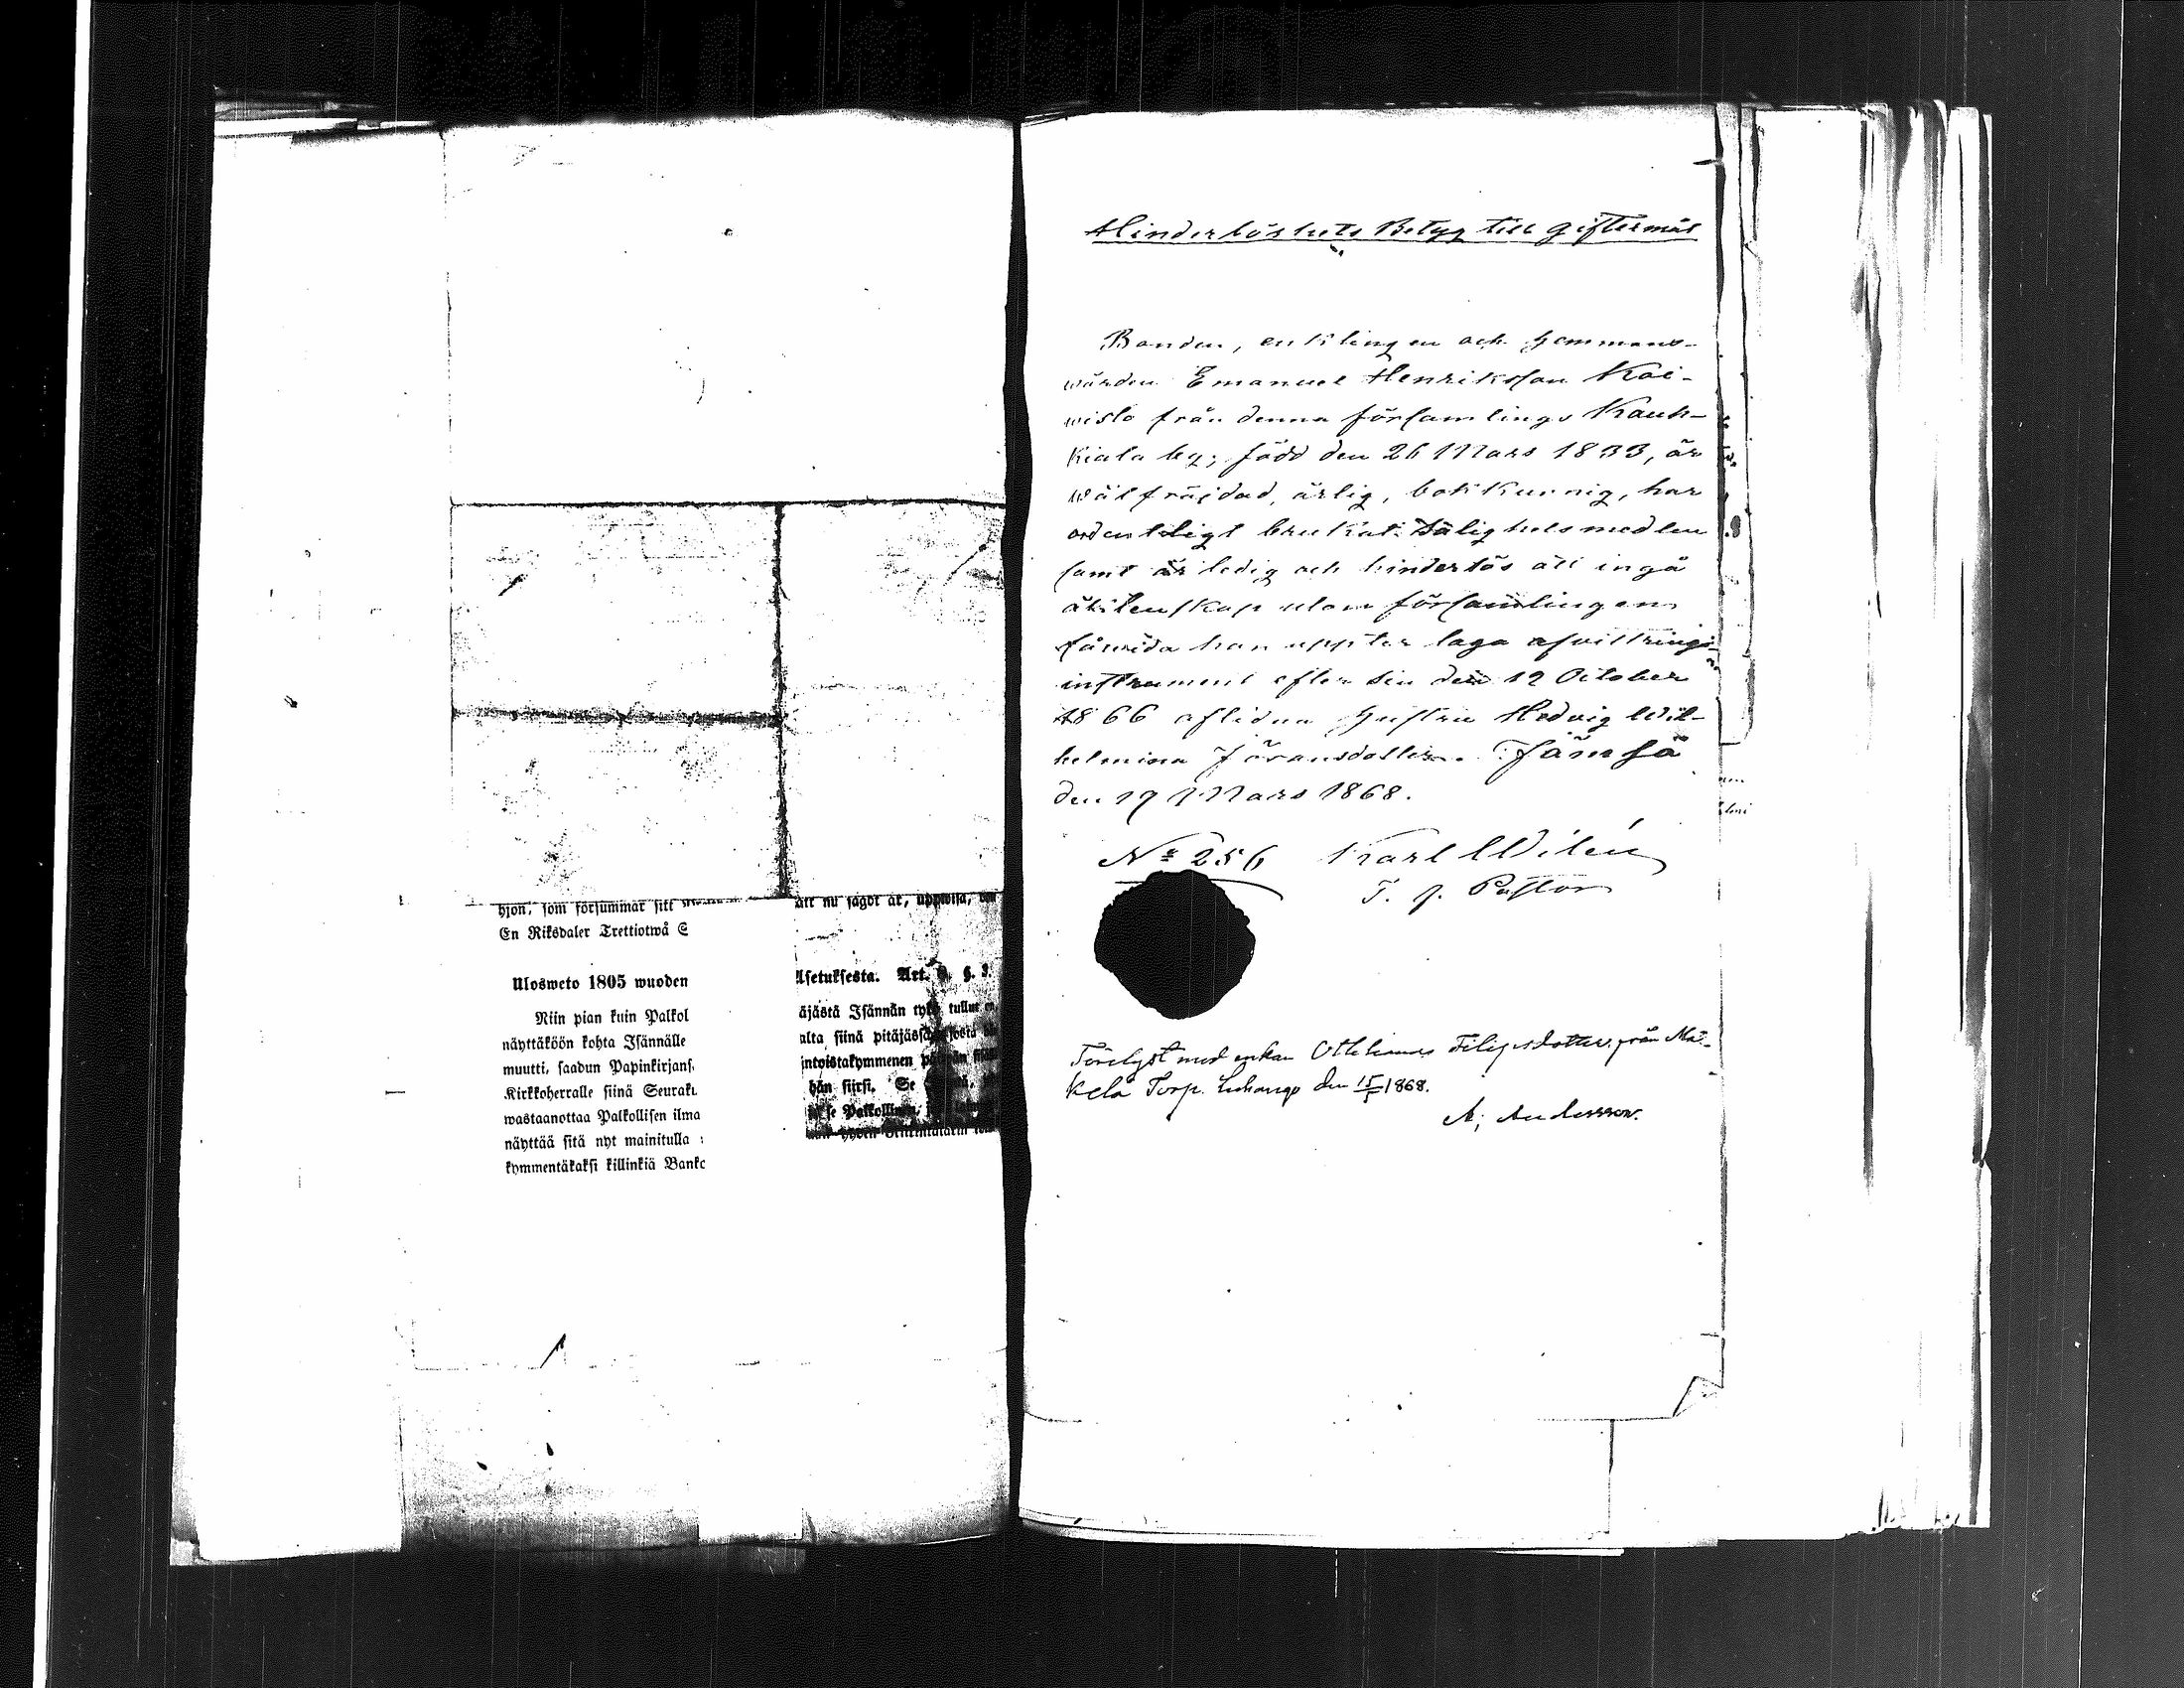 hjon, som försummat sitt
En Riksdaler Trettiotwå S
Ulosweto 1805 wuoden
Niin pian kuin Palkol
näyttäköön kohta Isännälle
muutti, saadun Papinkirjans,
Kirkkoherralle siinä Seuraku
wastaanottaa Palkollisen ilma
näyttää sitä nyt mainitulla
kymmentäkaksi killinkiä Banko
att nu sagdt är, uppwisa,
Asetuksesta. Art. 9. §. 3.
äjästä Isännän tykö tullut
alta siinä pitäjäsSä josta
intoistakymmenen päiwän
hän siirsi. Se
se Palkollinen,
Hinderlöshets Betyg till giftermål
Bonden, enklingen och hemmans-
wärden Emanuel Henriksson Koi-
wisto från denna församlings Kauh-
kiala by; född den 26 Mars 1833, är
wälfräjdad, ärlig, bokkunnig, har
ordentligt brukat Salighetsmedlen
samt är ledig och hinderlös att ingå
äktenskap utom församlingen
såwida han uppter laga afvittrings-
instrument efter sin den 12 October
1866 aflidna hustru Hedvig Wil-
helmina Jöransdotter. Jämsä
den 19 Mars 1868.
No 256 Karl Wilén
T. f. Pastor
Förelyst med enkan Otteliana Filipsdotter från Mä-
kelä Torp. Luhango den 15/5 1868.
A. Andersson.